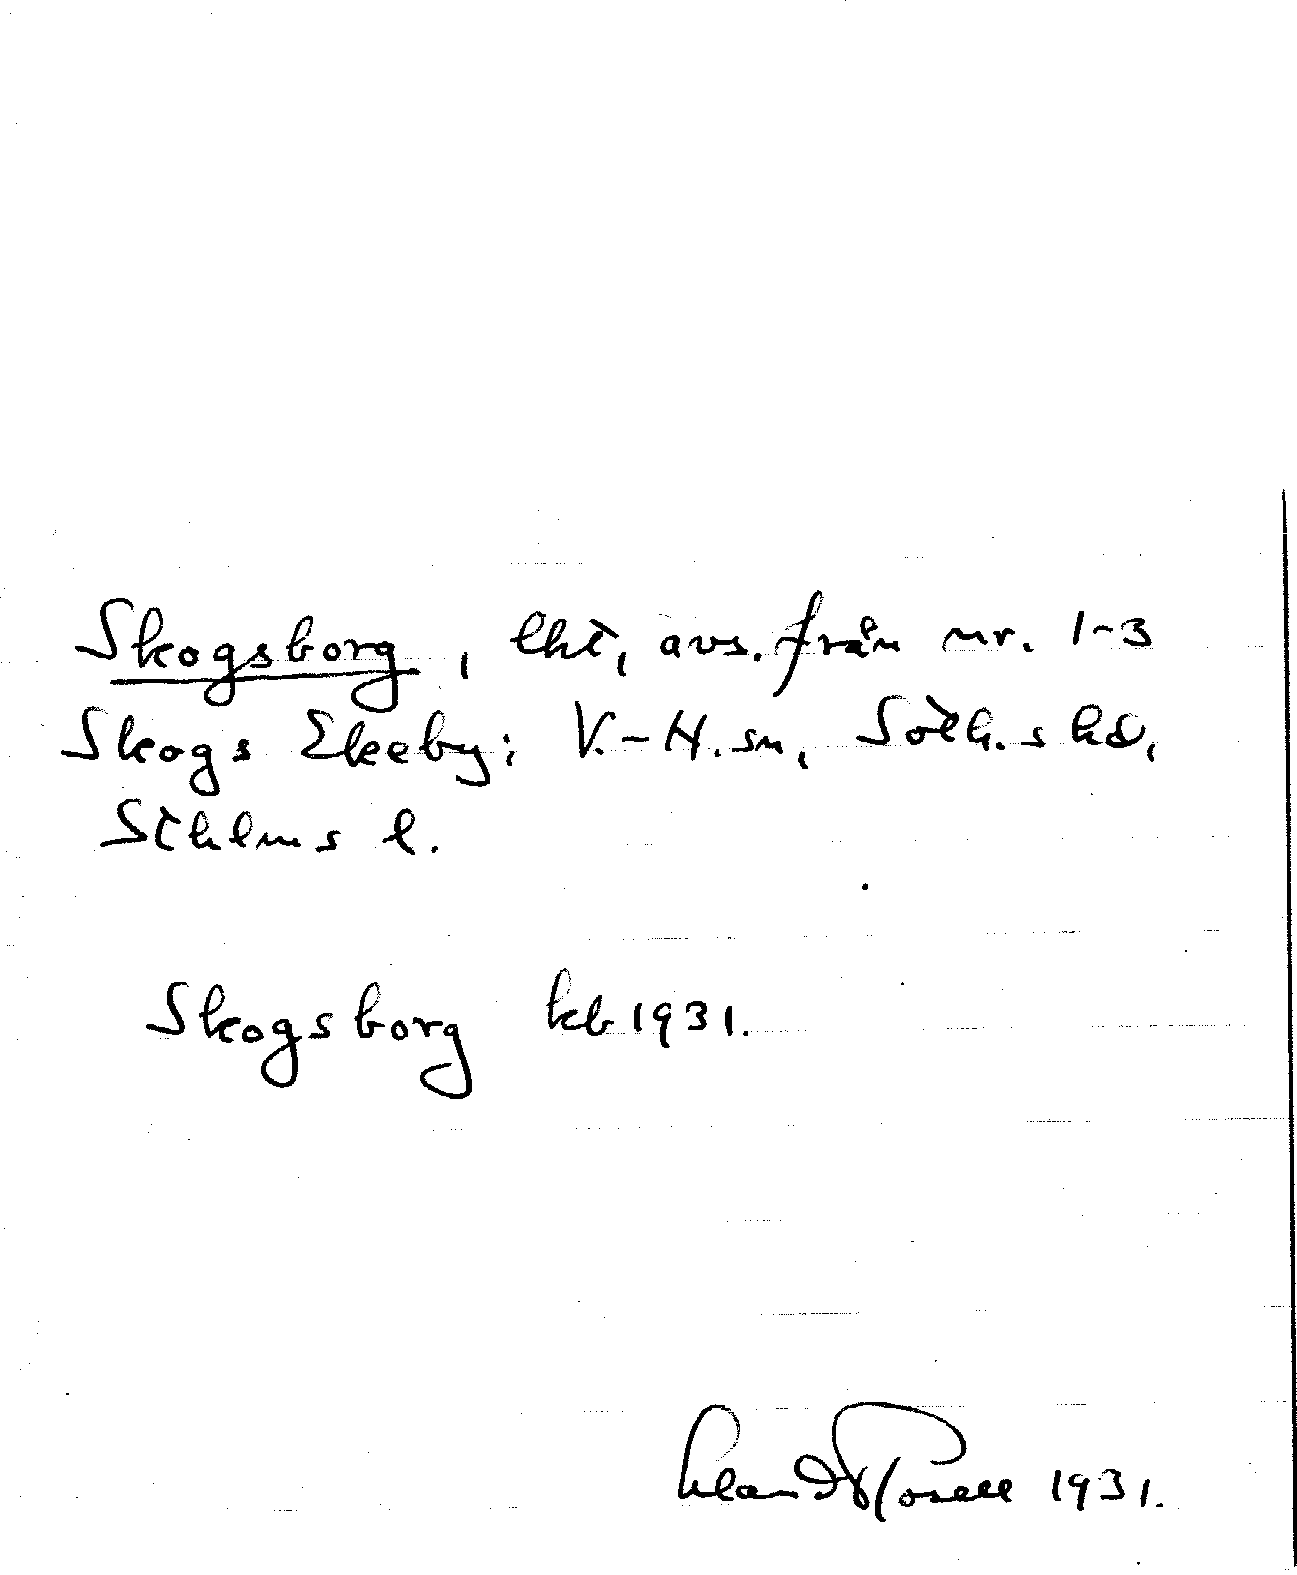 Skogsborg, lht, avs. från nr. 1-3
Skogs Ekeby; V.-H. sn, Soth.s hd,
Sthlms l.
Skogsborg kb 1931.
1931.